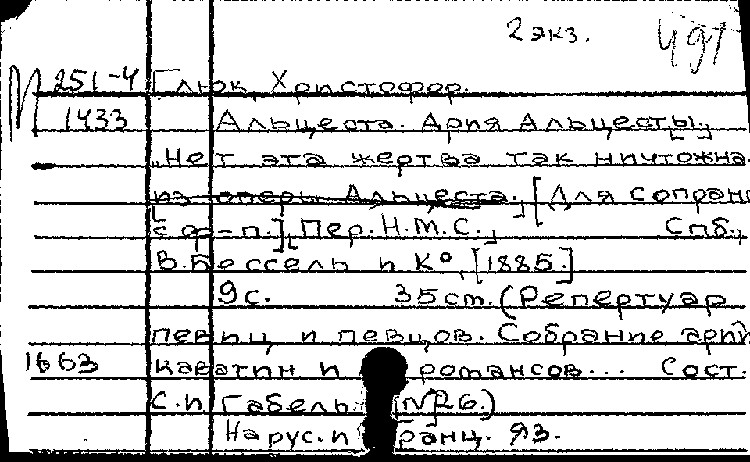 2 экз. 491
М 251-4 Глюк, Христофор.
1433 Альцеста. Ария Альцесты[.]
"Нет эта жертва так ничтожна
из оперы Альцеста. [Для сопрано
с ф-п.] [Пер. Н.М.С.] Спб.,
В. Бессель и К°, [1885.]
9 с. 35 cm. (Репертуар
певиц и певцов. Собрание арий
1663 каватин и романсов... Сост.
С. и Габель. №26.)
На рус. и франц. яз.